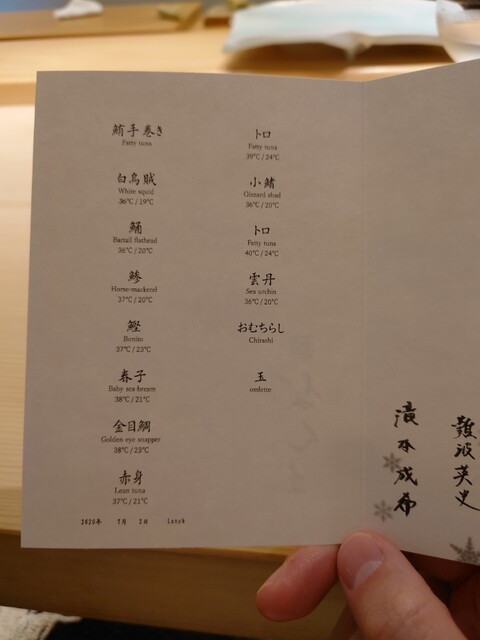 鮪手巻き
Fatty tuna
白烏賊
White squid
36℃ / 19℃
鯒
Bartail flathead
36℃ / 20℃
鯵
Horse-mackerel
37℃ / 20℃
鰹
Bonito
37℃ / 23℃
春子
Baby sea bream
38℃ / 21℃
金目鯛
Golden eye snapper
38℃ / 23℃
赤身
Lean tuna
37℃ / 21℃
2020年 7月 2日 Lunch
トロ
Fatty tuna
39℃ / 24℃
小鰭
Gizzard shad
36℃ / 20℃
トロ
Fatty tuna
40℃ / 24℃
雲丹
Sea urchin
36℃ / 20℃
おむちらし
Chirashi
玉
omlette
成希
難波英史